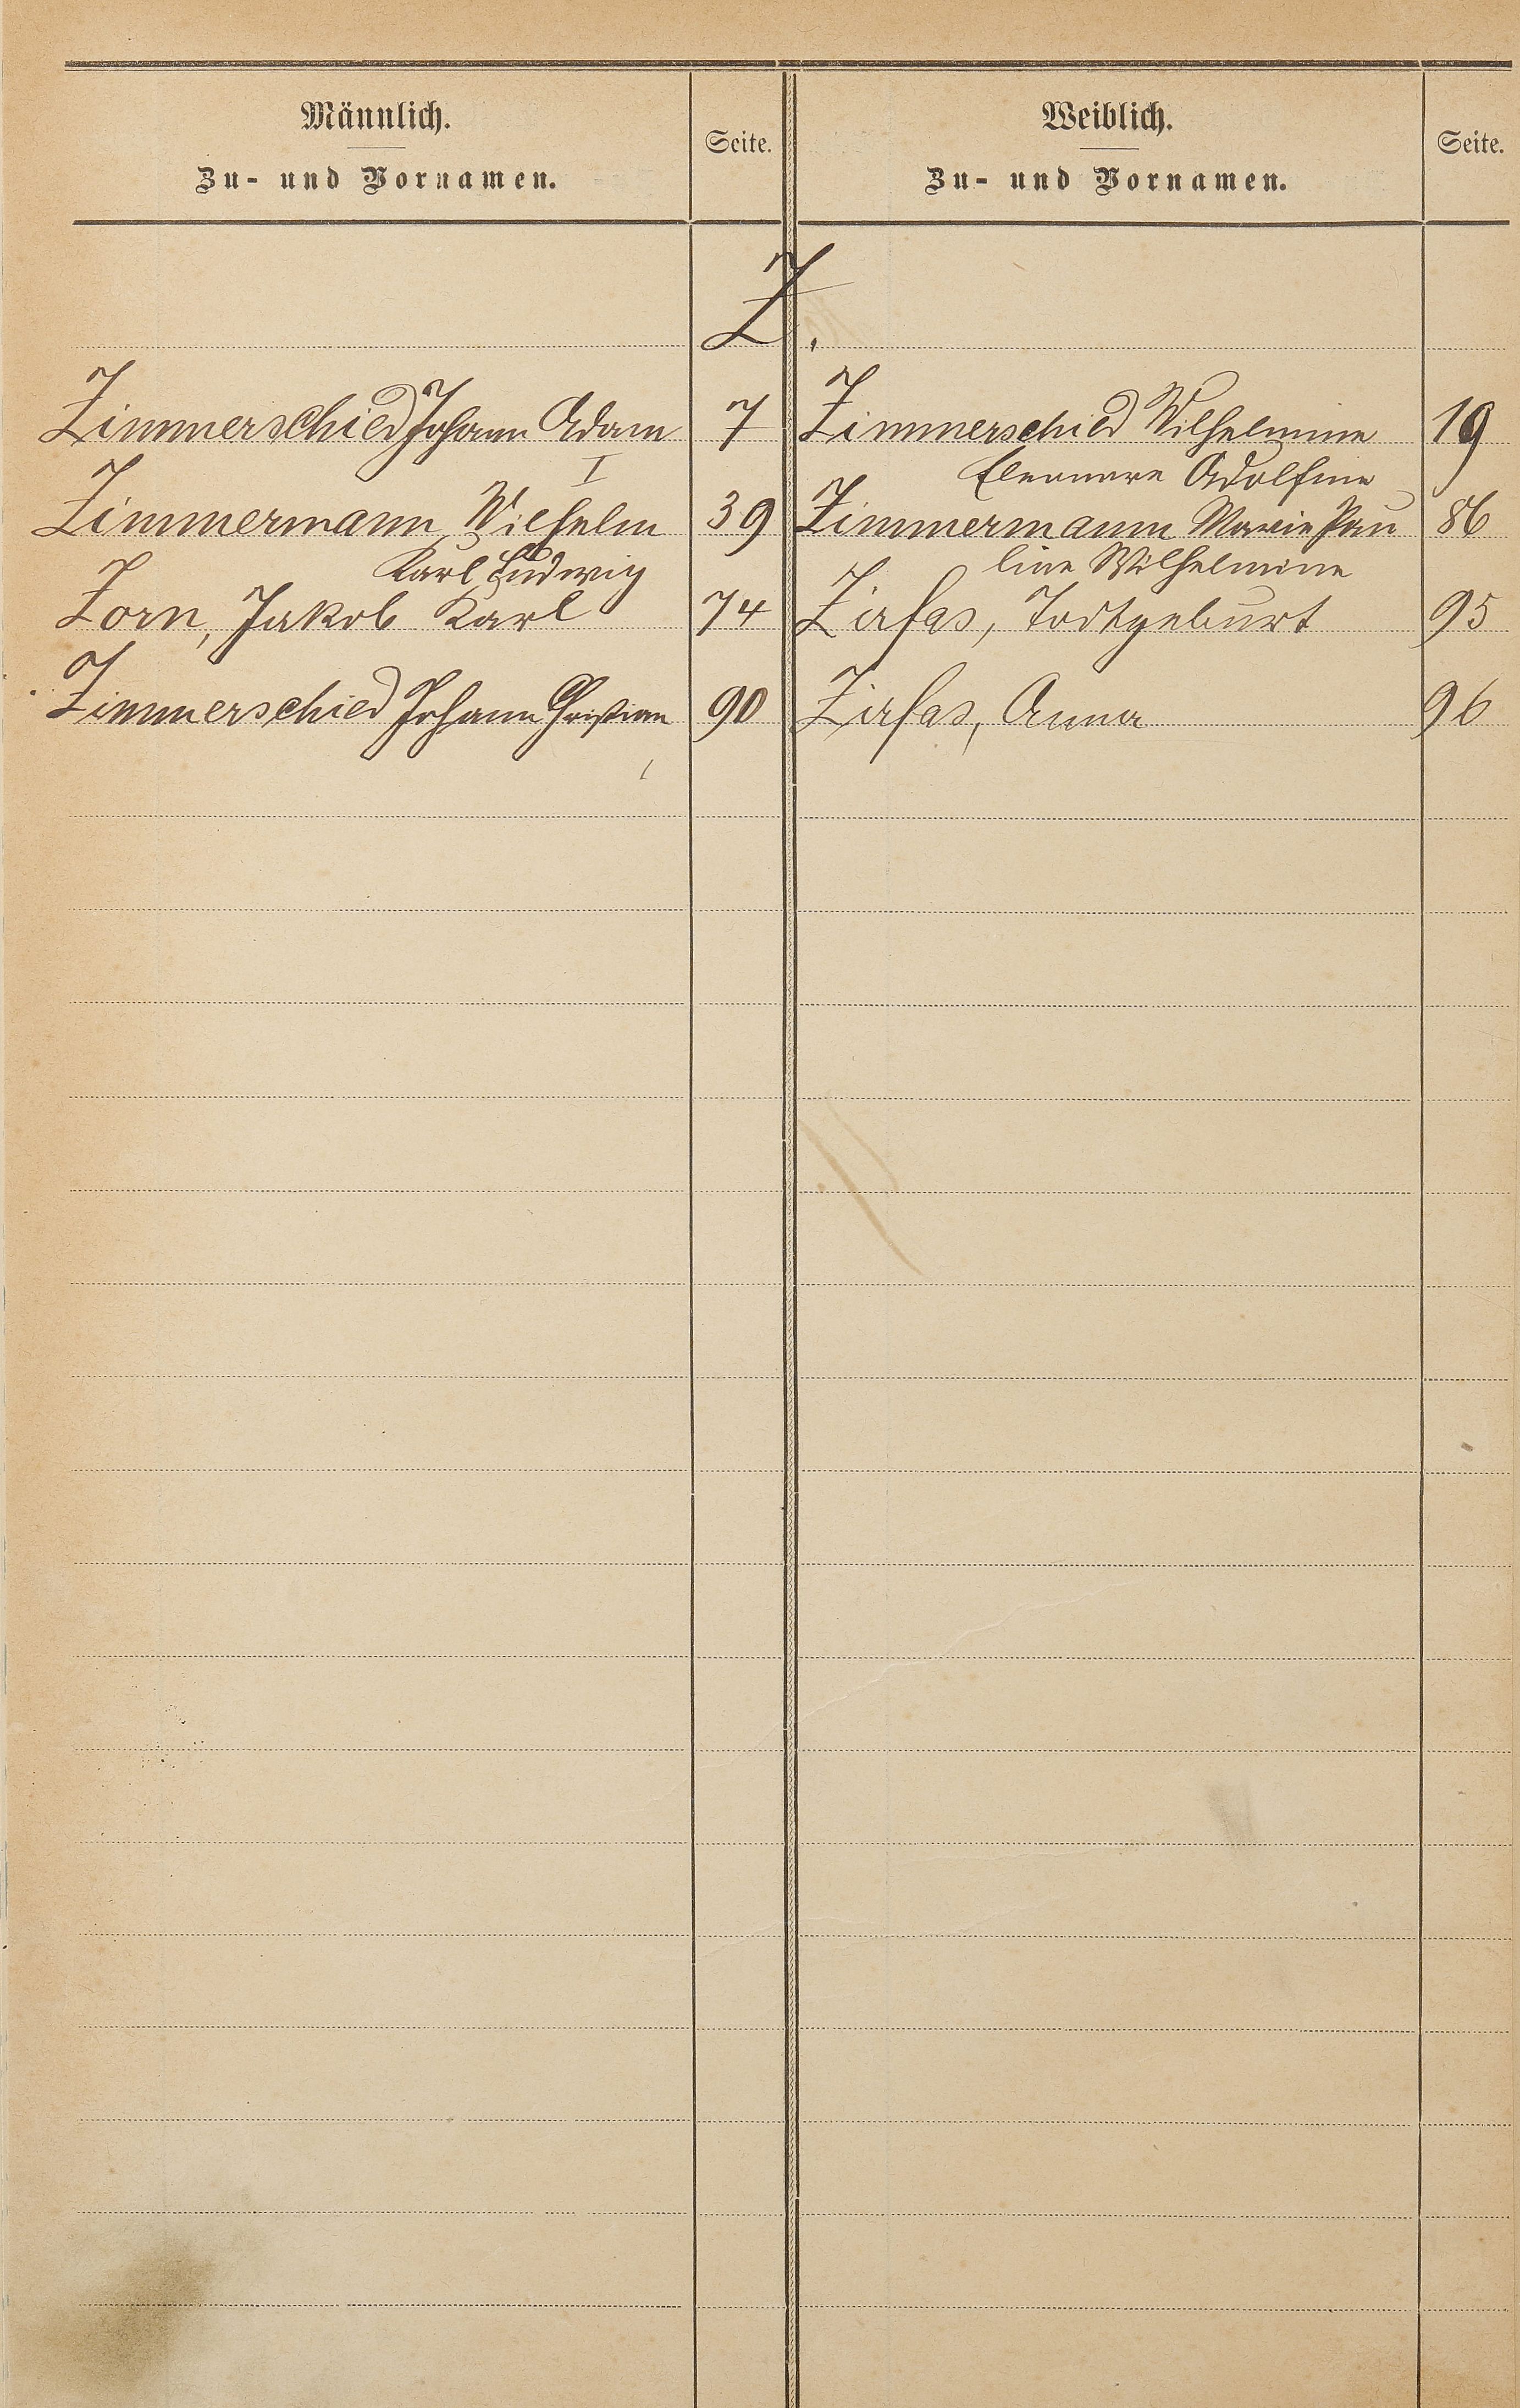 Männlich.
Zu- und Vornamen.
Seite.
Weiblich.
Zu- und Vornamen.
Seite.
Z.
Zimmerschied Johann Adam 7
I
Zimmermann, Wilhelm 39
Karl Ludwig
Zorn, Jakob Karl 74
Zimmerschied Johann Christian 90
Zimmerschied Wilhelmine 19
Eleonore Adolfine
Zimmermann Marie Pau 86
line Wilhelmine
Zirfas, Todtgeburt 95
Zirfas, Anna 96